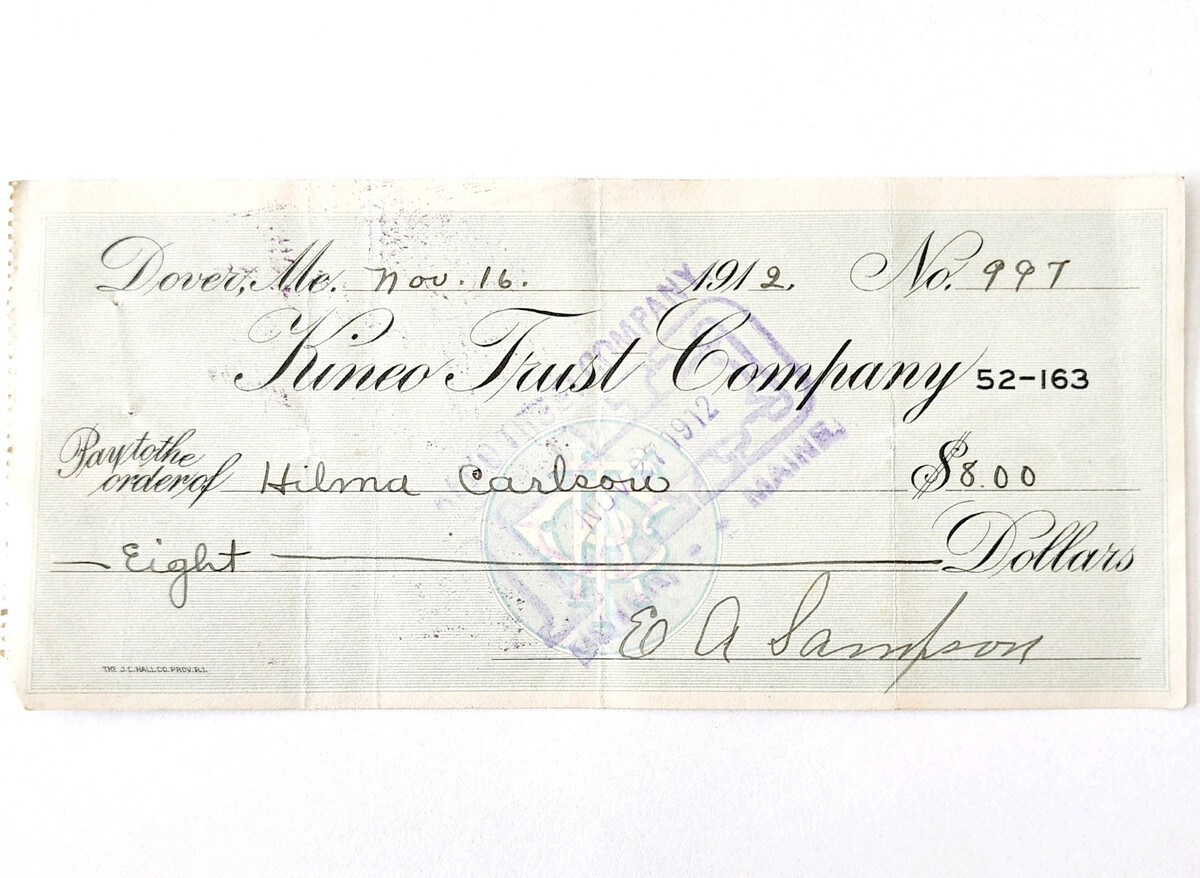 Dover, Me. Nov. 16. 1912. No. 997
Kineo Trust Company 52-163
Pay to the order of Hilma Carlson $8.00
Eight Dollars
E A Sampson
THE J.C. HALL CO. PROV. R.I.
COMPANY
NOV 1912
MAINE